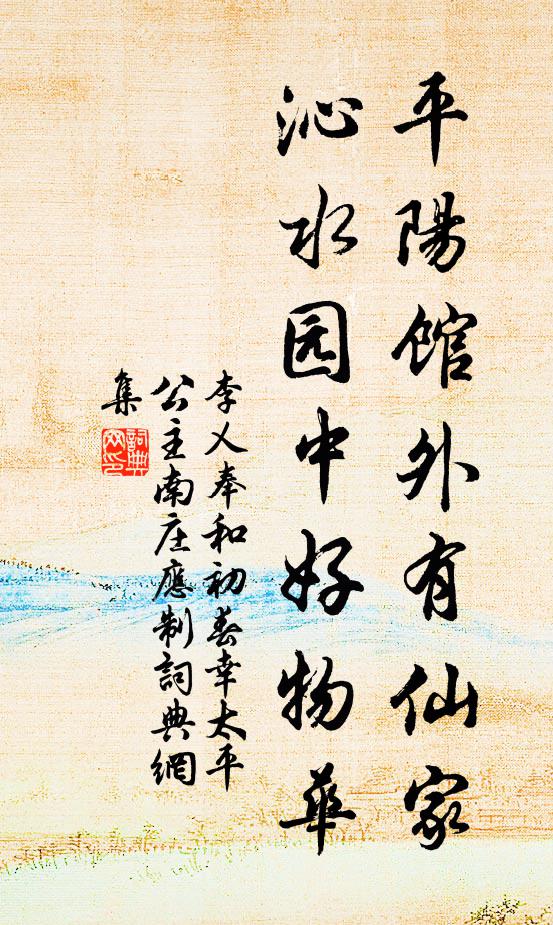 平陽館外有仙家
沁水园中好物華
李乂奉和初春幸太平
公主南庄應制詞典網
集
詞典網印